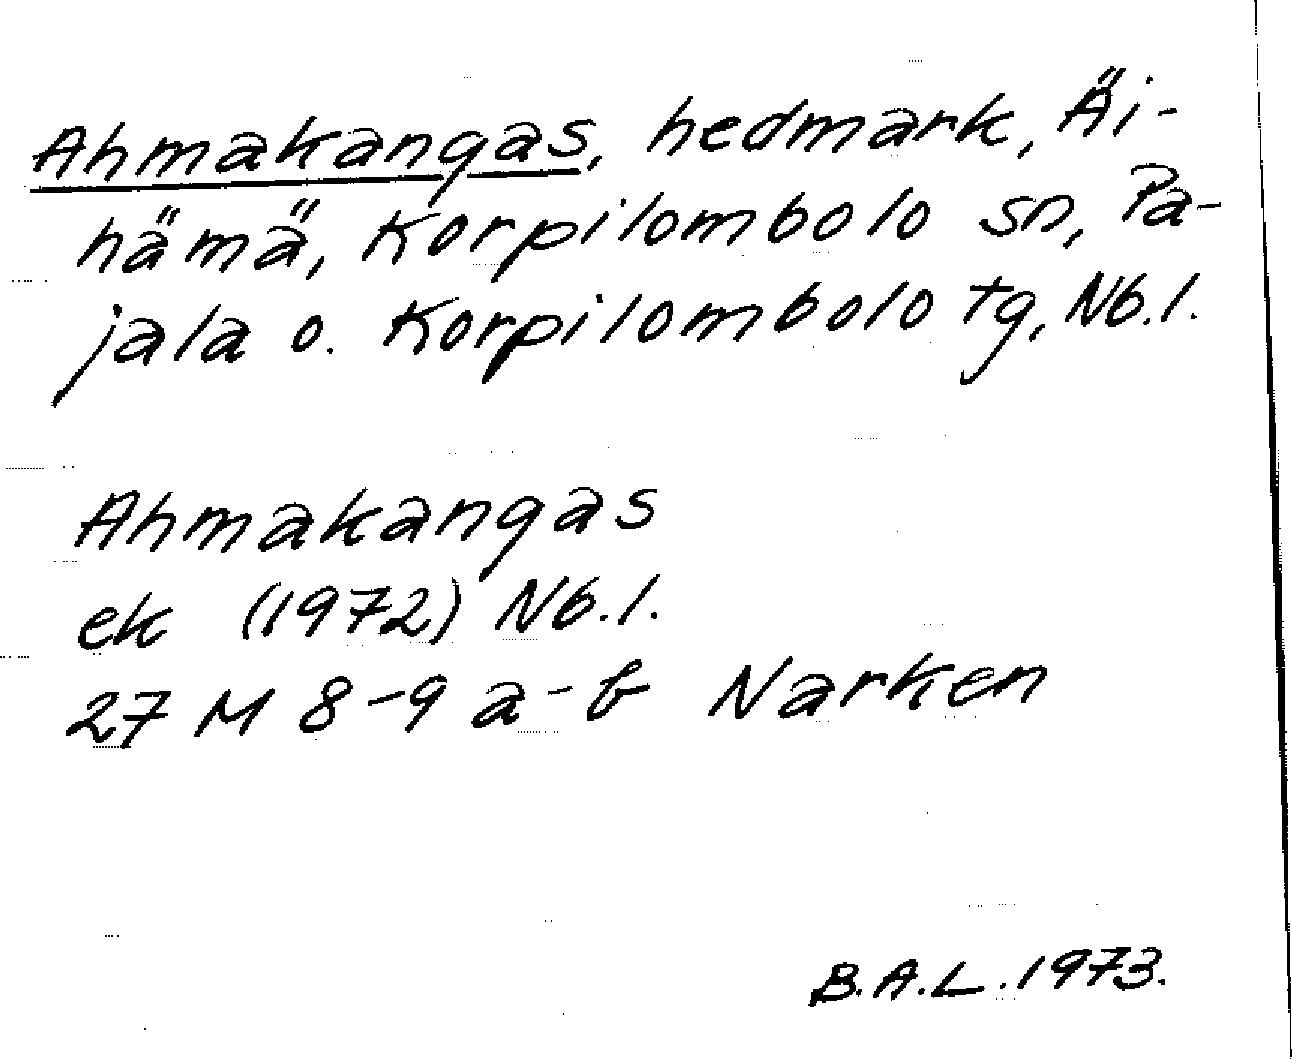 Ahmakangas, hedmark, Äi-
hämä, Korpilombolo sn, Pa-
jala o. Korpilombolo tg, Nb.l.
Ahmakangas
ek (1972) Nb.l.
27 M 8-9 a-b Narken
B.A.L. 1973.